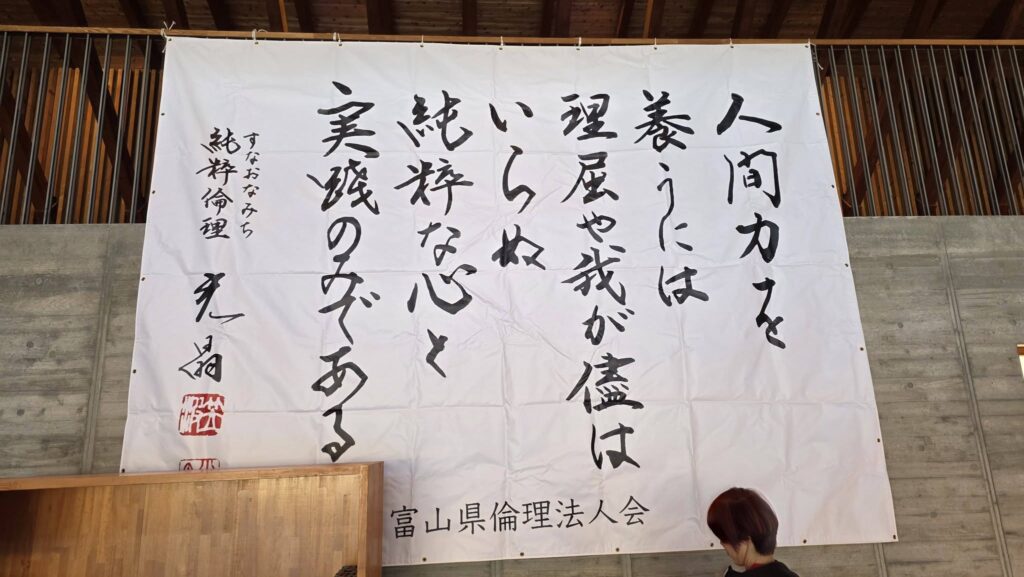 人間力を
養うには
理屈や我が儘は
いらぬ
純粋な心と
実践のみである
すなおなみち
純粋倫理
富山県倫理法人会